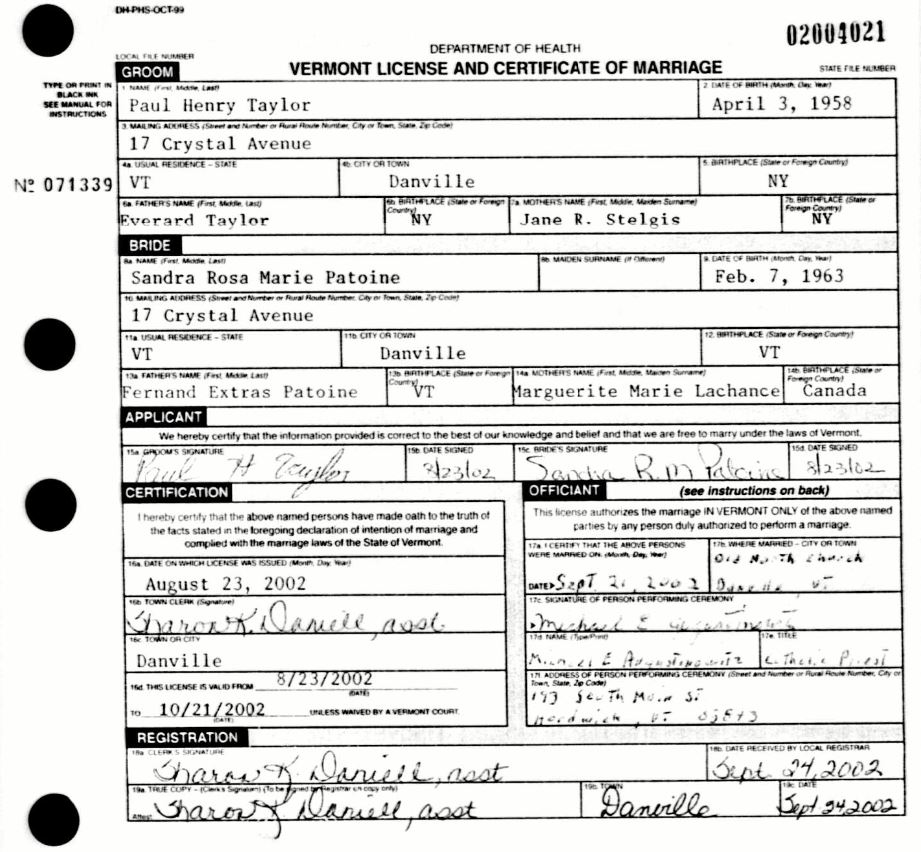 DH-PHS-OCT-99
02004021
DEPARTMENT OF HEALTH
LOCAL FILE NUMBER
VERMONT LICENSE AND CERTIFICATE OF MARRIAGE
STATE FILE NUMBER
TYPE OR PRINT IN
BLACK INK
SEE MANUAL FOR
INSTRUCTIONS
Nº 071339
GROOM
1. NAME (First, Middle, Last)
2. DATE OF BIRTH (Month, Day, Year)
Paul Henry Taylor
April 3, 1958
3. MAILING ADDRESS (Street and Number or Rural Route Number, City or Town, State, Zip Code)
17 Crystal Avenue
4a. USUAL RESIDENCE – STATE
4b. CITY OR TOWN
5. BIRTHPLACE (State or Foreign Country)
VT
Danville
NY
6a. FATHER'S NAME (First, Middle, Last)
6b. BIRTHPLACE (State or Foreign Country)
7a. MOTHER'S NAME (First, Middle, Maiden Surname)
7b. BIRTHPLACE (State or Foreign Country)
Everard Taylor
NY
Jane R. Stelgis
NY
BRIDE
8a. NAME (First, Middle, Last)
8b. MAIDEN SURNAME (If Different)
9. DATE OF BIRTH (Month, Day, Year)
Sandra Rosa Marie Patoine
Feb. 7, 1963
10. MAILING ADDRESS (Street and Number or Rural Route Number, City or Town, State, Zip Code)
17 Crystal Avenue
11a. USUAL RESIDENCE – STATE
11b. CITY OR TOWN
12. BIRTHPLACE (State or Foreign Country)
VT
Danville
VT
13a. FATHER'S NAME (First, Middle, Last)
13b. BIRTHPLACE (State or Foreign Country)
14a. MOTHER'S NAME (First, Middle, Maiden Surname)
14b. BIRTHPLACE (State or Foreign Country)
Fernand Extras Patoine
VT
Marguerite Marie Lachance
Canada
APPLICANT
We hereby certify that the information provided is correct to the best of our knowledge and belief and that we are free to marry under the laws of Vermont.
15a. GROOM'S SIGNATURE
15b. DATE SIGNED
15c. BRIDE'S SIGNATURE
15d. DATE SIGNED
Paul H Taylor
8/23/02
Sandra R.M Patoine
8/23/02
CERTIFICATION
I hereby certify that the above named persons have made oath to the truth of
the facts stated in the foregoing declaration of intention of marriage and
complied with the marriage laws of the State of Vermont.
16a. DATE ON WHICH LICENSE WAS ISSUED (Month, Day, Year)
August 23, 2002
16b. TOWN CLERK (Signature)
Sharon K. Daniell, asst
16c. TOWN OR CITY
Danville
16d. THIS LICENSE IS VALID FROM 8/23/2002
(DATE)
TO 10/21/2002 UNLESS WAIVED BY A VERMONT COURT.
(DATE)
OFFICIANT (see instructions on back)
This license authorizes the marriage IN VERMONT ONLY of the above named
parties by any person duly authorized to perform a marriage.
17a. I CERTIFY THAT THE ABOVE PERSONS
WERE MARRIED ON: (Month, Day, Year)
DATE Sept. 21, 2002
17b. WHERE MARRIED – CITY OR TOWN
Old North Church
Danville, VT
17c. SIGNATURE OF PERSON PERFORMING CEREMONY
Michael E Augustinowitz
17d. NAME (Type/Print)
17e. TITLE
Michael E Augustinowitz
Catholic Priest
17f. ADDRESS OF PERSON PERFORMING CEREMONY (Street and Number or Rural Route Number, City or
Town, State, Zip Code)
193 South Main St
Hardwick, VT 05843
REGISTRATION
18a. CLERK'S SIGNATURE
18b. DATE RECEIVED BY LOCAL REGISTRAR
Sharon K. Daniell, asst
Sept. 24, 2002
19a. TRUE COPY – (Clerk's Signature) (To be signed by Registrar on copy only)
19b. TOWN
19c. DATE
Attest: Sharon K Daniell, asst
Danville
Sept 24, 2002